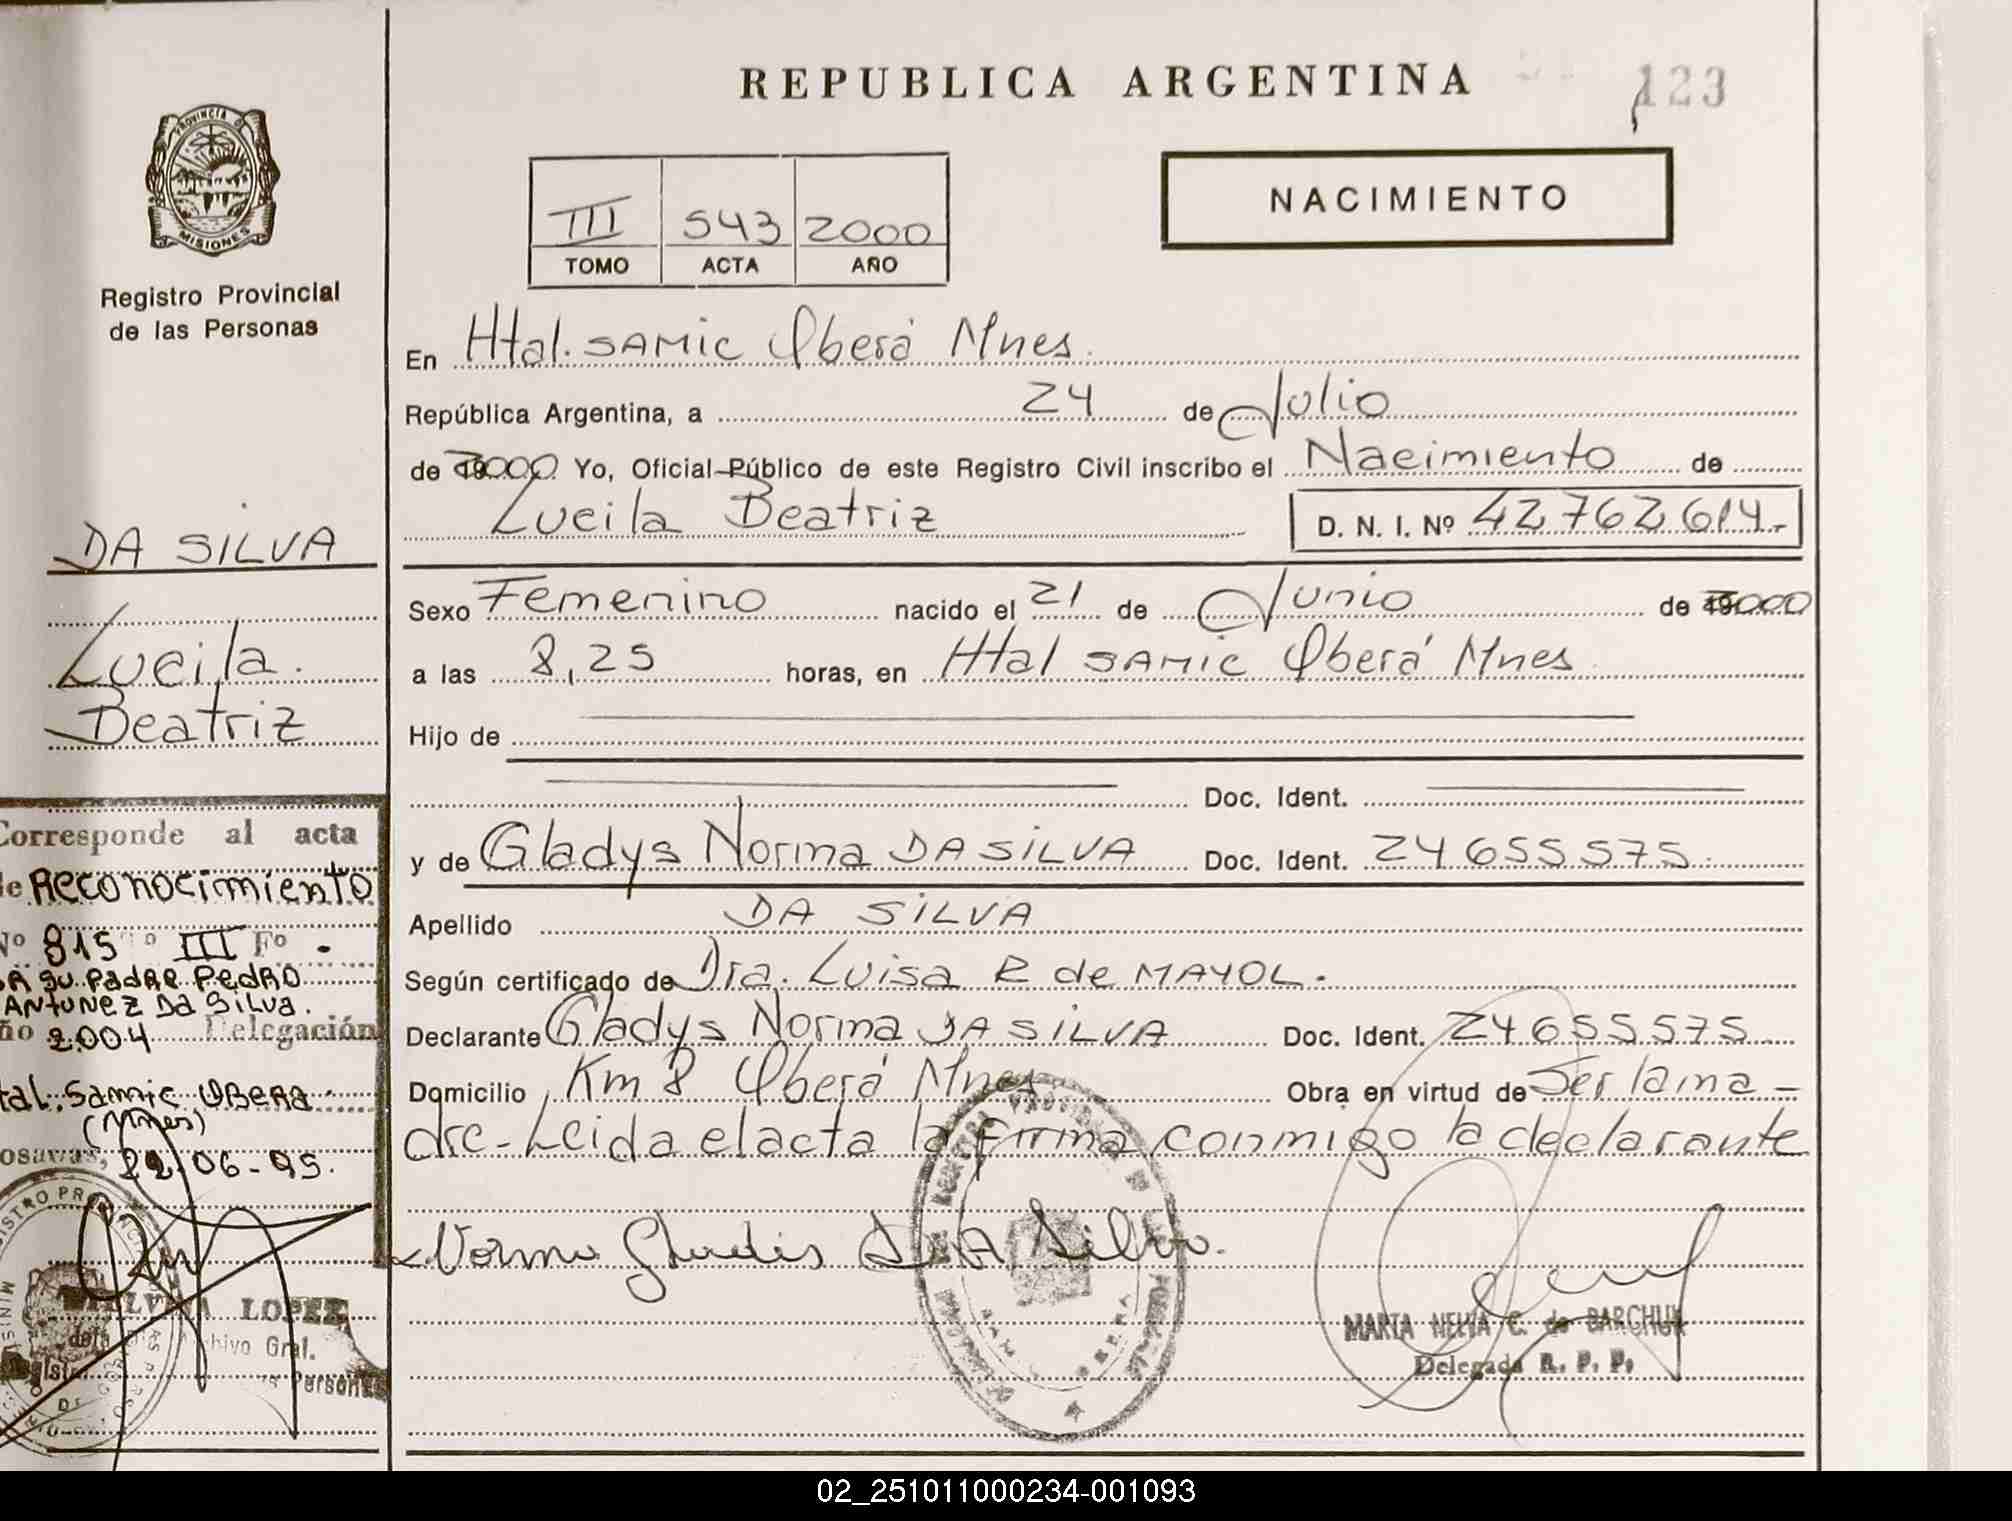 REPUBLICA ARGENTINA
123
PROVINCIA DE
MISIONES
Registro Provincial
de las Personas
NACIMIENTO
III 543 2000
TOMO ACTA AÑO
En Htal. SAMIC Oberá Mnes.
República Argentina, a 24 de Julio
de 2000 Yo, Oficial Público de este Registro Civil inscribo el Nacimiento de
Lucila Beatriz D. N. I. Nº 42762614.-
Sexo Femenino nacido el 21 de Junio de 2000
a las 8,25 horas, en Htal SAMIC Oberá Mnes.
Hijo de
Doc. Ident.
y de Gladys Norma DA SILVA Doc. Ident. 24655575.
Apellido DA SILVA
Según certificado de Dra. Luisa R de MAYOL.
Declarante Gladys Norma DA SILVA Doc. Ident. 24655575
Domicilio Km 8 Oberá Mnes Obra en virtud de Ser la ma-
dre-Leida el acta la firma conmigo la declarante
Norma Gladis DA Silva.
MARTA NELVA C. de BARCHUK
Delegada R. P. P.
DA SILVA
Lucila
Beatriz
Corresponde al acta
de Reconocimiento
Nº 815 Tº III Fº -
DA su Padre Pedro
Antunez Da Silva.
Año 2.004 Delegación
Htal. Samic Obera
(Mnes)
Posadas, 22-06-05.
LOPEZ
Archivo Gral.
Personas
02_251011000234-001093